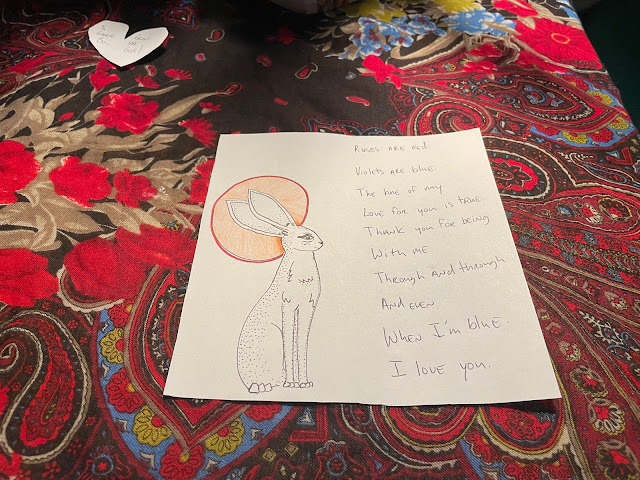 Roses are red
Violets are blue.
The hue of my
Love for you is true
Thank you for being
With me
Through and through
And even
When I'm blue.
I love you.